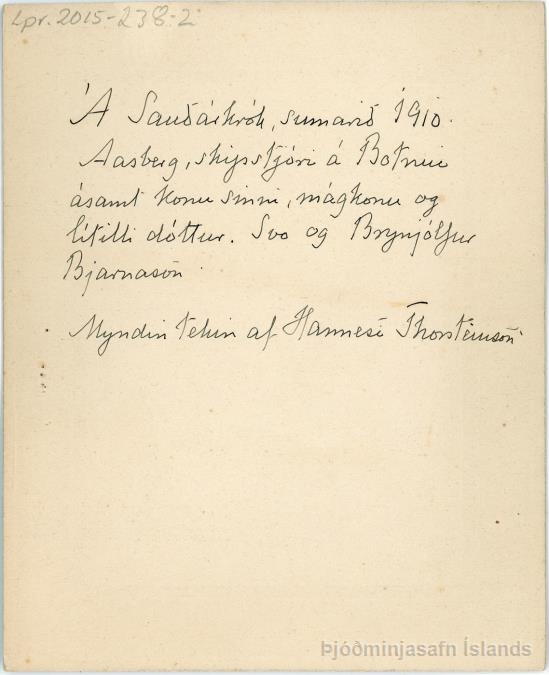 Lpr. 2015-238-2
Á Sauðárkrók, sumarið 1910.
Aasberg, skipstjóri á Botniu
ásamt konu sinni, mágkonu og
lítilli dóttur. Svo og Brynjólfur
Bjarnason
Myndin tekin af Hannesi Thorsteinson
Þjóðminjasafn Íslands